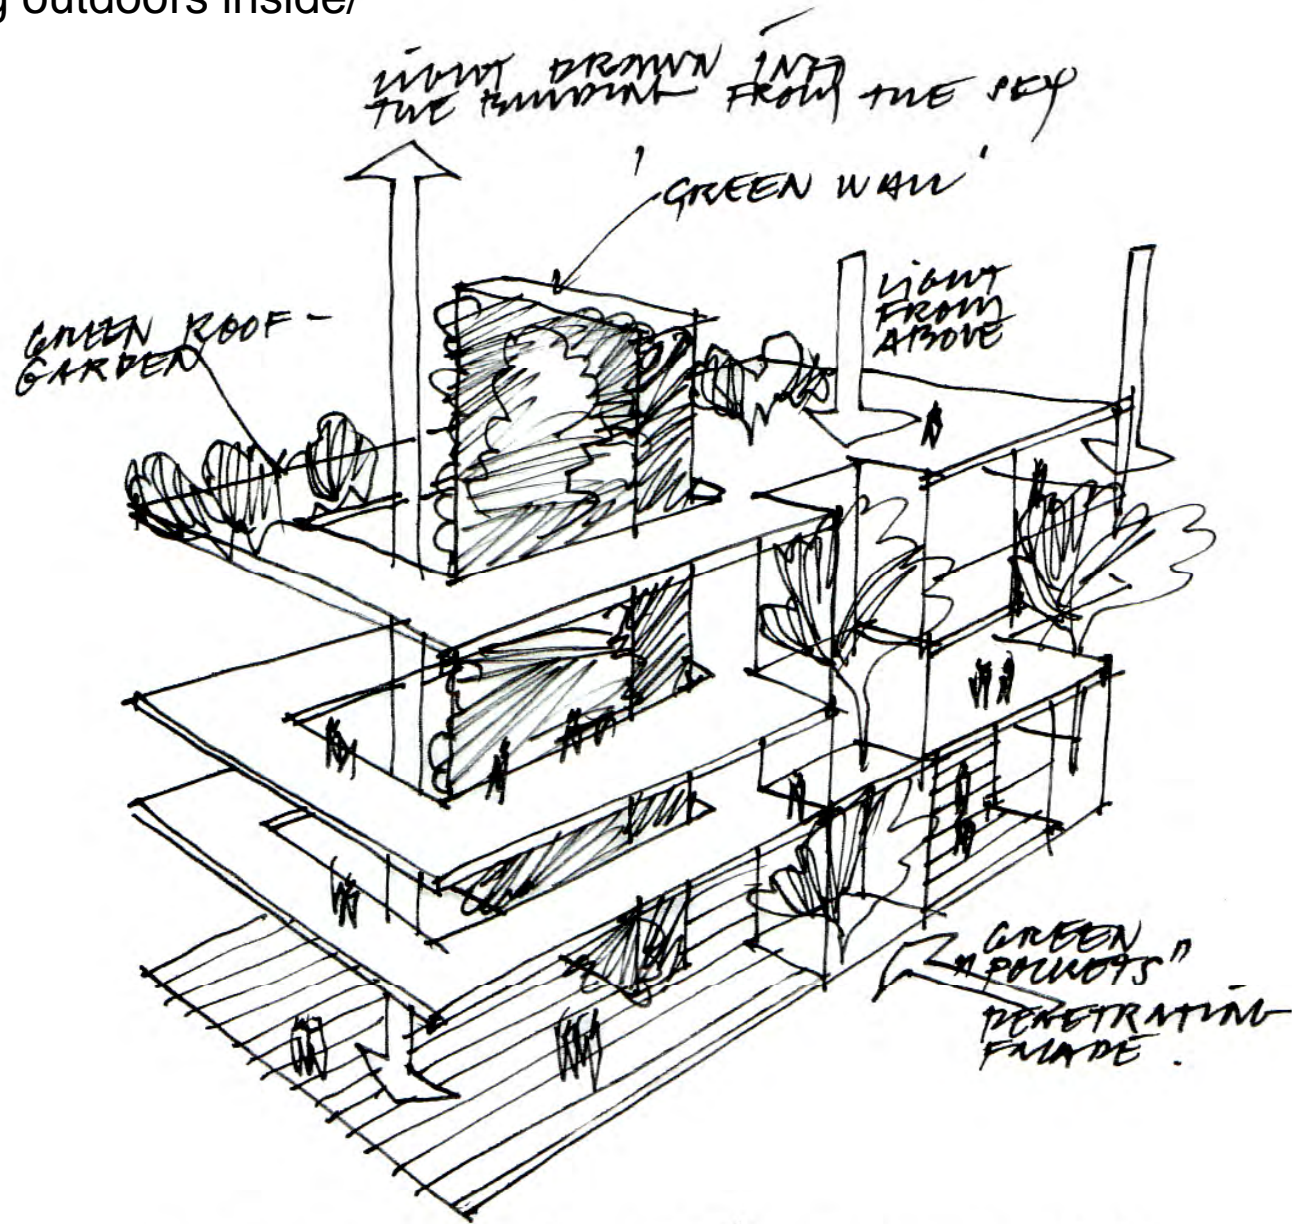 g outdoors inside/
LIGHT DRAWN INTO
THE BUILDING FROM THE SKY
'GREEN WALL'
LIGHT
FROM
ABOVE
GREEN ROOF-
GARDEN
GREEN
"POCKETS"
PENETRATING
FACADE.